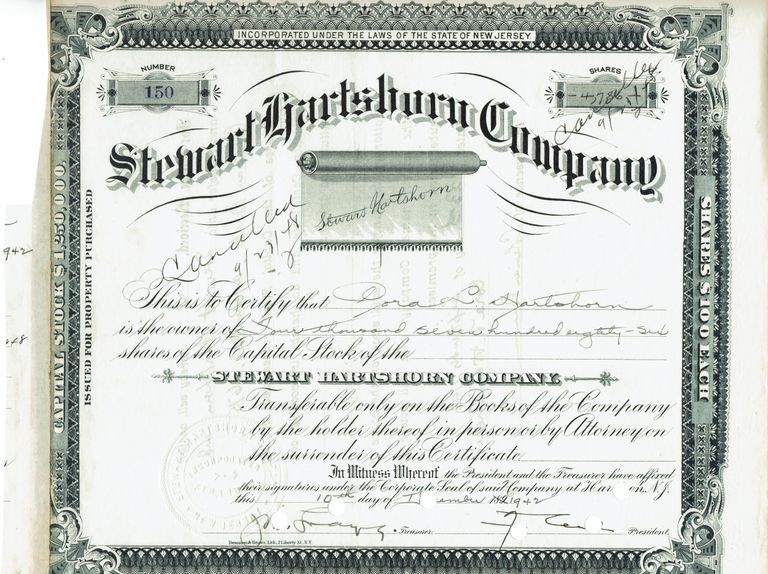 INCORPORATED UNDER THE LAWS OF THE STATE OF NEW JERSEY
NUMBER
150
SHARES
-4786-
Stewart Hartshorn Company
Stewart Hartshorn
Cancelled
9/23/48
CAPITAL STOCK $1,250,000.
ISSUED FOR PROPERTY PURCHASED
SHARES $100 EACH
942
This is to Certify that Cora L. Hartshorn
is the owner of Four thousand seven hundred eighty-six
shares of the Capital Stock of the
STEWART HARTSHORN COMPANY
Transferable only on the Books of the Company
by the holder thereof in person or by Attorney on
the surrender of this Certificate.
In Witness Whereof the President and the Treasurer have affixed
their signatures under the Corporate Seal of said Company at Har on, N.J.
this 10th day of 1942
Treasurer. President.